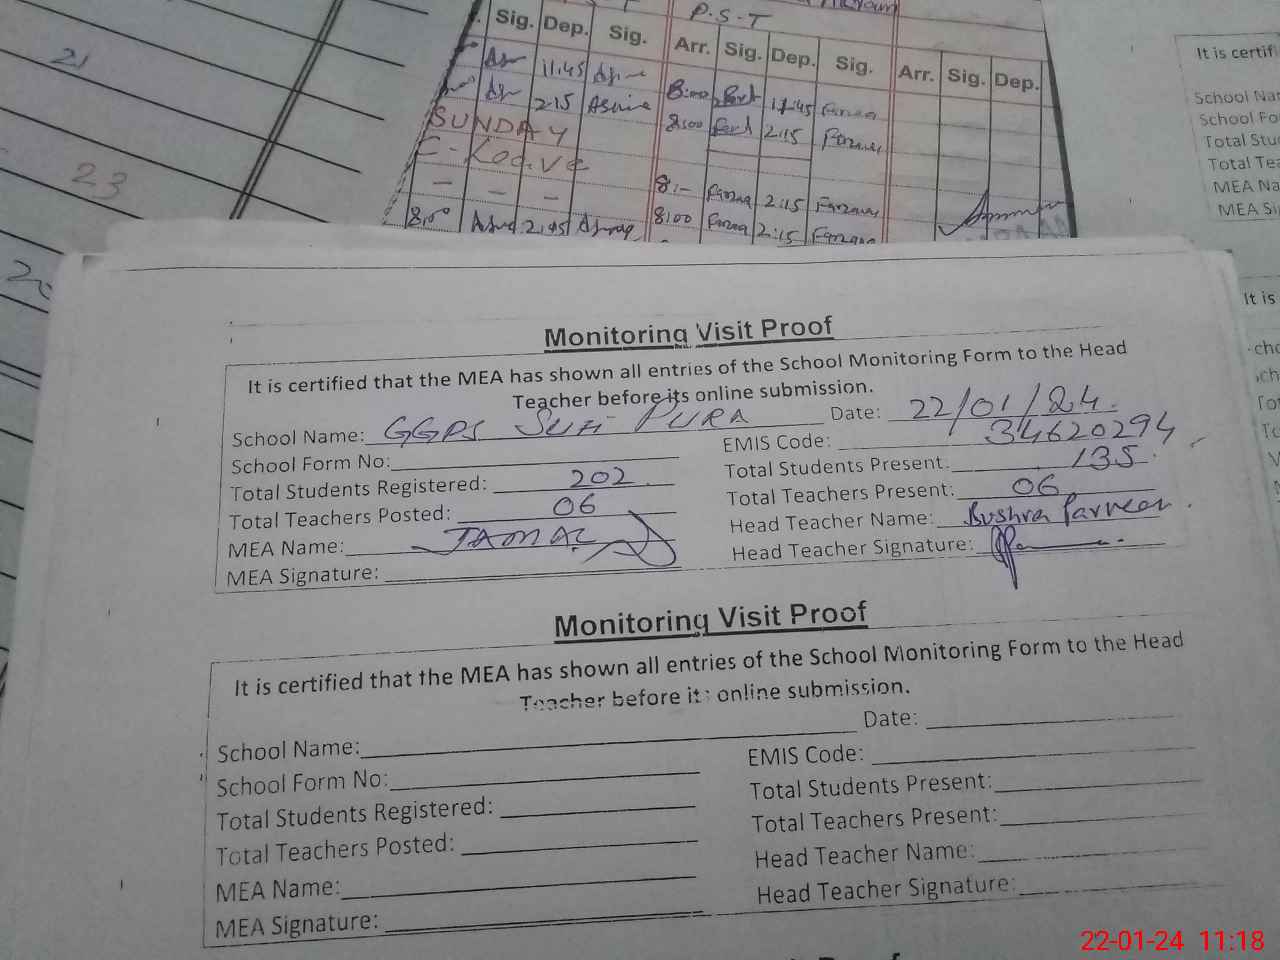 21
23
P.S.T
Sig. Dep. Sig. Arr. Sig. Dep. Sig. Arr. Sig. Dep.
11.45 8:00 11:45
2.15 Asma 8:00 2:15 Farzana
SUNDAY
C- Leave
— — — 8:- Farzana 2:15 Farzana
8:00 2:45 8:00 Farzana 2:15 Farzana
It is certifi
School Na
School Fo
Total Stu
Total Tea
MEA Na
MEA Si
It is
Monitoring Visit Proof
It is certified that the MEA has shown all entries of the School Monitoring Form to the Head
Teacher before its online submission.
School Name: GGPS SUFI PURA Date: 22/01/24.
School Form No: EMIS Code: 34620294
Total Students Registered: 202 Total Students Present: 135.
Total Teachers Posted: 06 Total Teachers Present: 06
MEA Name: JAMAL Head Teacher Name: Bushra Parveen.
MEA Signature: Head Teacher Signature:
Monitoring Visit Proof
It is certified that the MEA has shown all entries of the School Monitoring Form to the Head
Teacher before its online submission.
School Name: Date:
School Form No: EMIS Code:
Total Students Registered: Total Students Present:
Total Teachers Posted: Total Teachers Present:
MEA Name: Head Teacher Name:
MEA Signature: Head Teacher Signature:
22-01-24 11:18